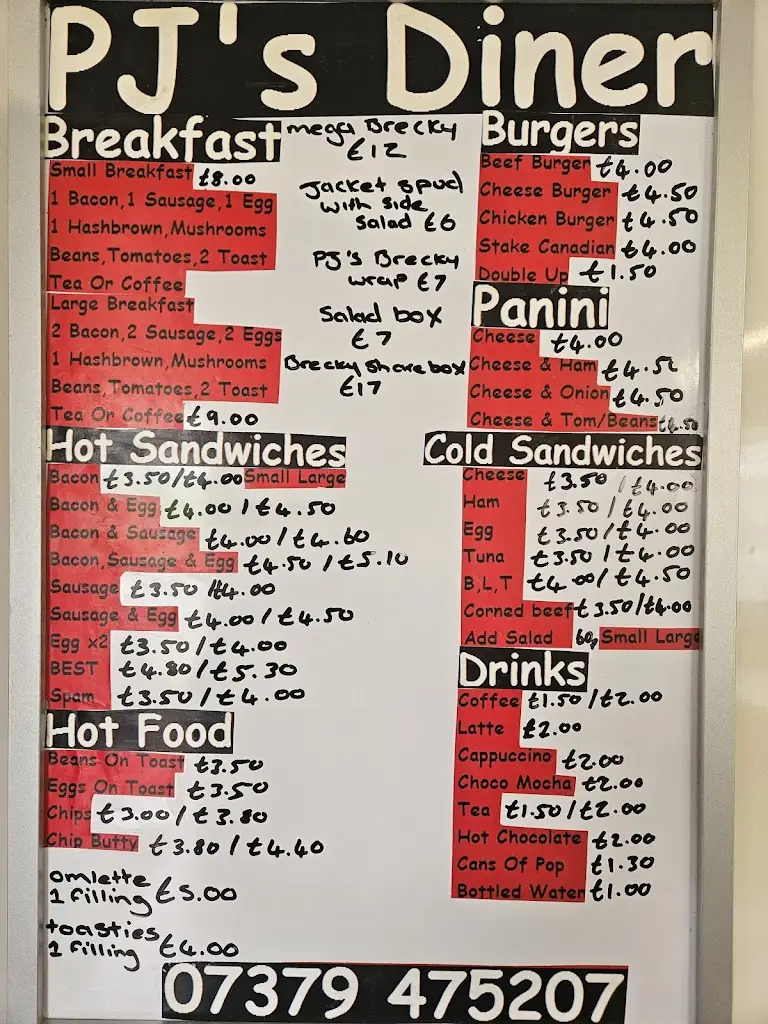 PJ's Diner
Breakfast
Small Breakfast £8.00
1 Bacon,1 Sausage,1 Egg
1 Hashbrown,Mushrooms
Beans,Tomatoes,2 Toast
Tea Or Coffee
Large Breakfast
2 Bacon,2 Sausage,2 Eggs
1 Hashbrown,Mushrooms
Beans,Tomatoes,2 Toast
Tea Or Coffee £9.00
mega Brecky
£12
Jacket spud
with side
Salad £6
PJ's Brecky
wrap £7
Salad box
£7
Brecky share box
£17
Burgers
Beef Burger £4.00
Cheese Burger £4.50
Chicken Burger £4.50
Stake Canadian £4.00
Double Up £1.50
Panini
Cheese £4.00
Cheese & Ham £4.50
Cheese & Onion £4.50
Cheese & Tom/Beans £4.50
Hot Sandwiches
Bacon £3.50/£4.00 Small Large
Bacon & Egg £4.00/£4.50
Bacon & Sausage £4.00/£4.60
Bacon,Sausage & Egg £4.50/£5.10
Sausage £3.50/£4.00
Sausage & Egg £4.00/£4.50
Egg x2 £3.50/£4.00
BEST £4.80/£5.30
Spam £3.50/£4.00
Cold Sandwiches
Cheese £3.50/£4.00
Ham £3.50/£4.00
Egg £3.50/£4.00
Tuna £3.50/£4.00
B,L,T £4.00/£4.50
Corned beef £3.50/£4.00
Add Salad 60p Small Large
Hot Food
Beans On Toast £3.50
Eggs On Toast £3.50
Chips £3.00/£3.80
Chip Butty £3.80/£4.40
omlette
1 filling £5.00
toasties
1 filling £4.00
Drinks
Coffee £1.50/£2.00
Latte £2.00
Cappuccino £2.00
Choco Mocha £2.00
Tea £1.50/£2.00
Hot Chocolate £2.00
Cans Of Pop £1.30
Bottled Water £1.00
07379 475207